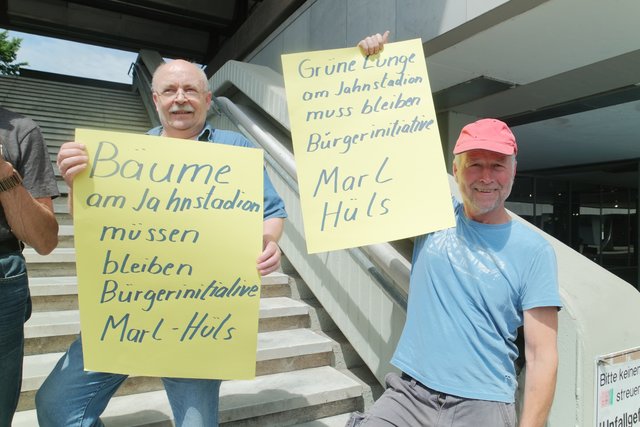 Bäume
am Jahnstadion
müssen
bleiben
Bürgerinitiative
Marl-Hüls
Grüne Lunge
am Jahnstadion
muss bleiben
Bürgerinitiative
Marl
Hüls
Bitte keinen
streuen
Unfallgef